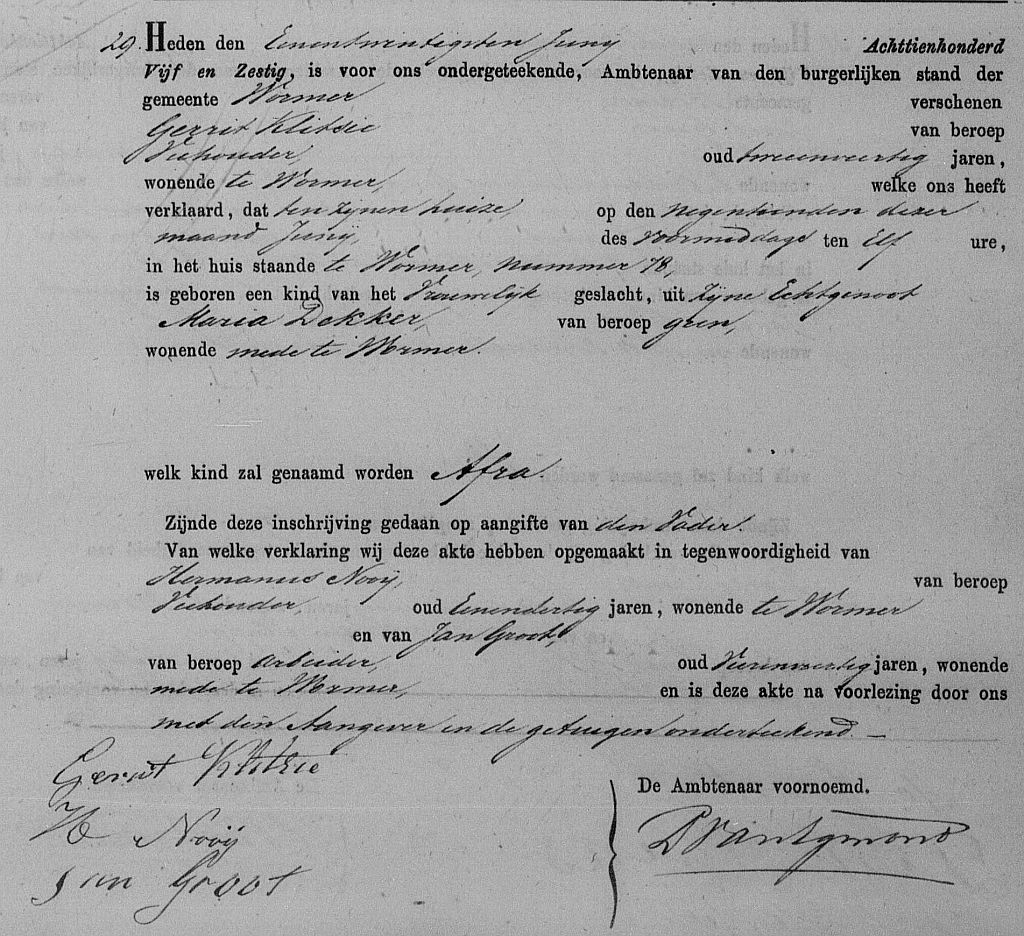 29. Heden den Eenentwintigsten Junij Achttienhonderd
Vijf en Zestig, is voor ons ondergeteekende, Ambtenaar van den burgerlijken stand der
gemeente Wormer verschenen
Gerrit Klitsie van beroep
Veehouder, oud tweeenveertig jaren,
wonende te Wormer, welke ons heeft
verklaard, dat ten zijnen huize, op den negentienden dezer
maand Junij, des voormiddags ten Elf ure,
in het huis staande te Wormer, nummer 78,
is geboren een kind van het Vrouwelijk geslacht, uit zijne Echtgenoot
Maria Dekker, van beroep geen,
wonende mede te Wormer.
welk kind zal genaamd worden Afra.
Zijnde deze inschrijving gedaan op aangifte van den Vader.
Van welke verklaring wij deze akte hebben opgemaakt in tegenwoordigheid van
Hermanus Nooij, van beroep
Veehouder, oud Eenendertig jaren, wonende te Wormer
en van Jan Groot,
van beroep Arbeider, oud Vierenveertig jaren, wonende
mede te Wormer, en is deze akte na voorlezing door ons
met den Aangever en de getuigen onderteekend. —
Gerrit Klitsie
De Ambtenaar voornoemd.
H Nooij
Jan Groot